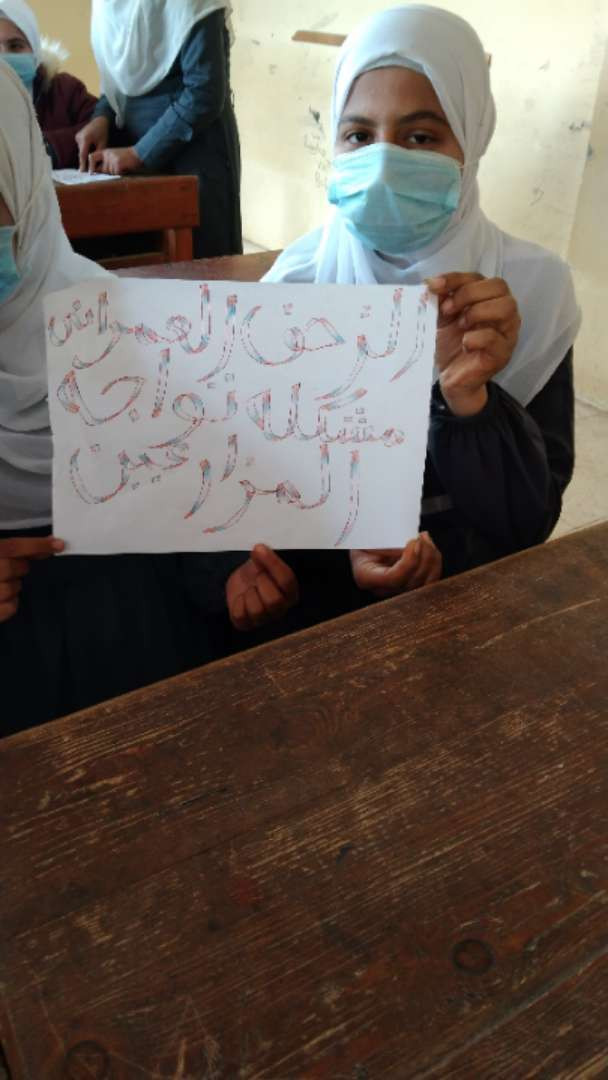 الزحف العمراني
مشكلة تواجه
المزارعين